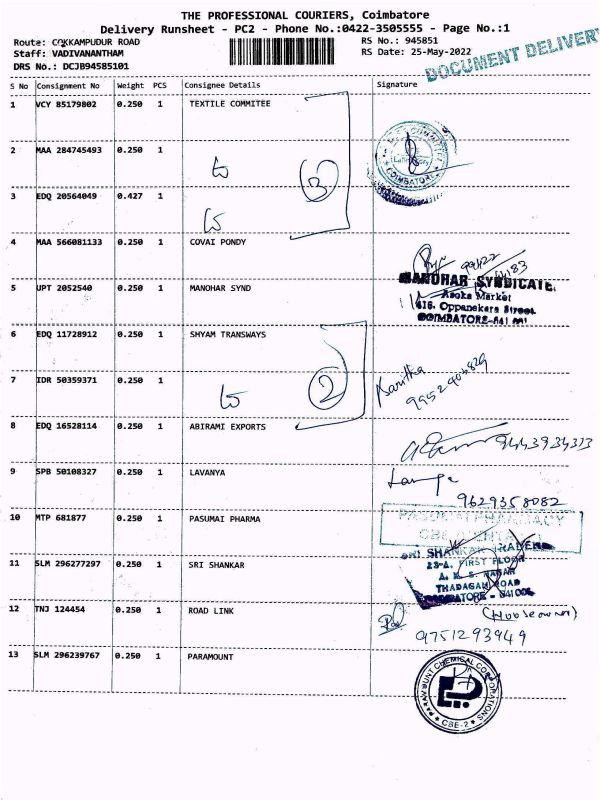 THE PROFESSIONAL COURIERS, Coimbatore
Delivery Runsheet - PC2 - Phone No.:0422-3505555 - Page No.:1
Route: COKKAMPUDUR ROAD RS No.: 945851
Staff: VADIVANANTHAM RS Date: 25-May-2022
DRS No.: DCJB94585101
DOCUMENT DELIVERY
S No Consignment No Weight PCS Consignee Details Signature
1 VCY 85179802 0.250 1 TEXTILE COMMITEE
2 MAA 284745493 0.250 1
COIMBATORE
3
3 EDQ 20564049 0.427 1
4 MAA 566081133 0.250 1 COVAI PONDY
99422
5 UPT 2052540 0.250 1 MANOHAR SYND
MANOHAR SYNDICATE.
Asoka Market
416, Oppanakara Street.
COIMBATORE-641 001
6 EDQ 11728912 0.250 1 SHYAM TRANSWAYS
7 IDR 50359371 0.250 1
2
8 EDQ 16528114 0.250 1 ABIRAMI EXPORTS
9443934313
9 SPB 50108327 0.250 1 LAVANYA
9629358082
10 MTP 681877 0.250 1 PASUMAI PHARMA
PASUMAI PHARMACY
11 SLM 296277297 0.250 1 SRI SHANKAR
SRI SHANKAR TRADERS
23-A, FIRST FLOOR
THADAGAM ROAD
COIMBATORE - 641 005
12 TNJ 124454 0.250 1 ROAD LINK
(House owner)
9751293949
13 SLM 296239767 0.250 1 PARAMOUNT
PARAMOUNT CHEMICAL CORPORATIONS
CBE-2